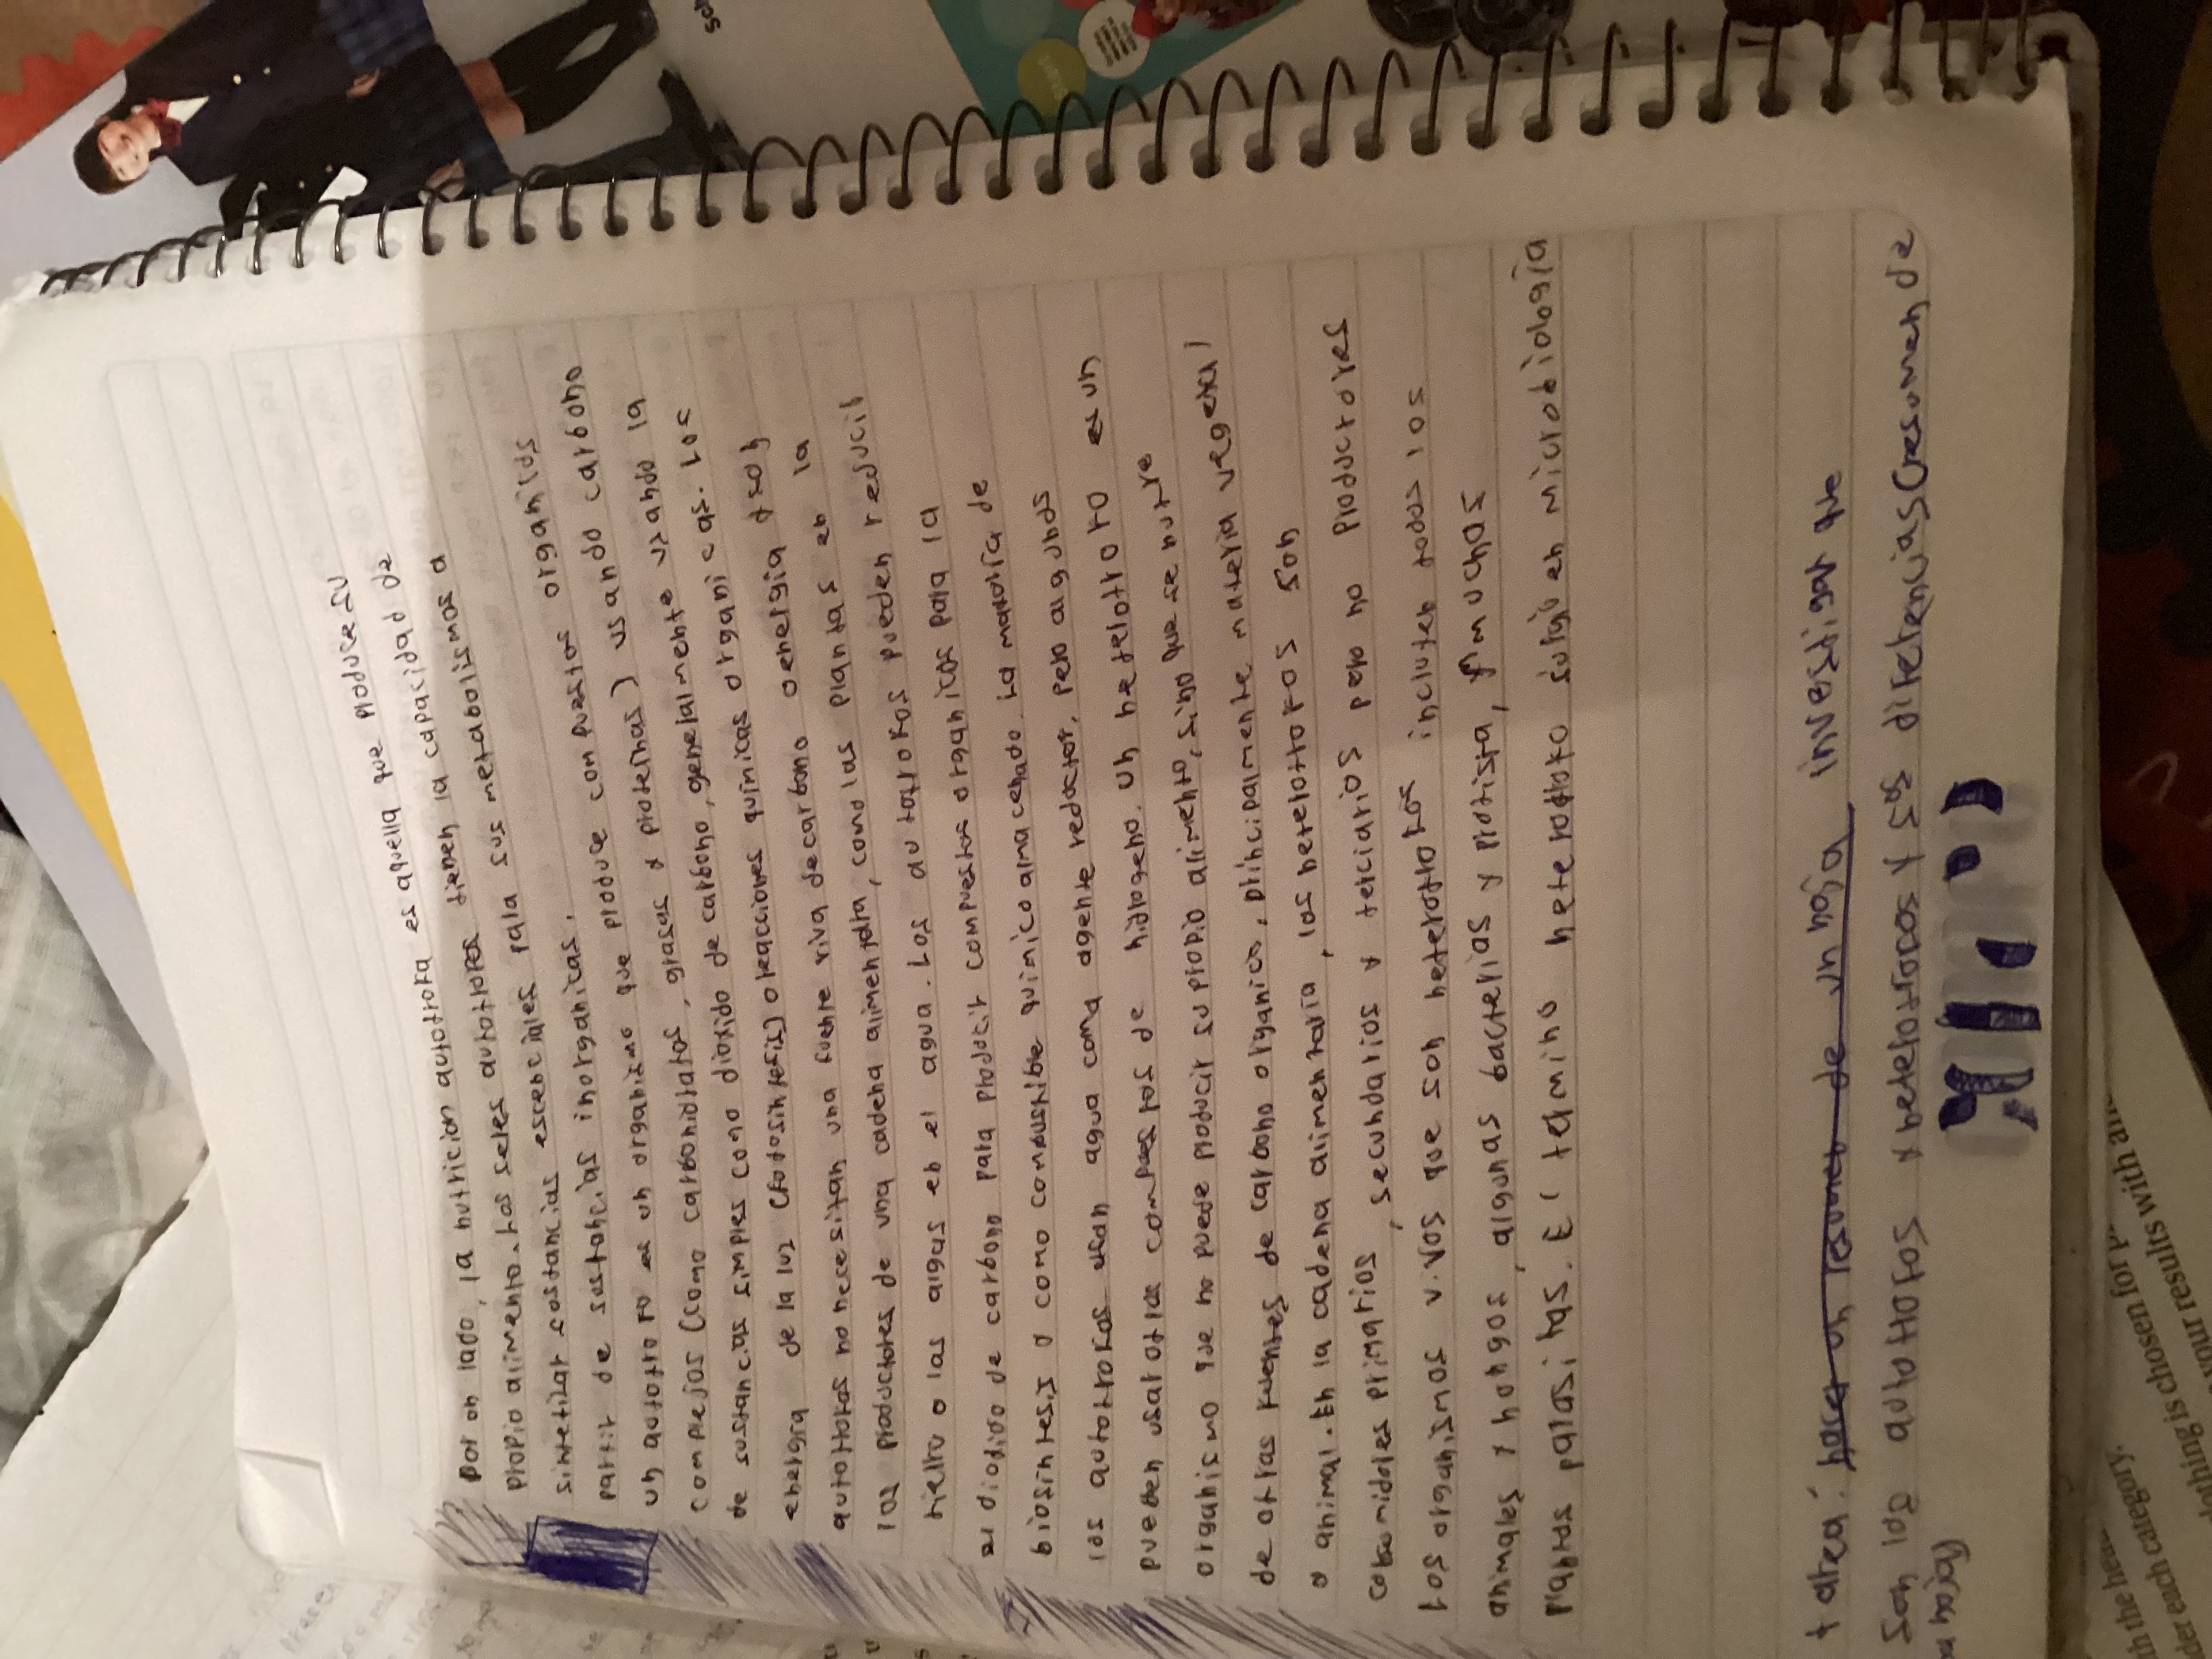 Por un lado, la nutricion autotrofa es aquella que produce su
propio alimento. Los seres autotrofos tienen la capacidad de
sintetizar sostancias escenciales para sus metabolismos a
partir de sustancias inorganicas.
un autotrofo es un organismo que produce compuestos organicos
complejos (como carbohidratos, grasas y proteinas) usando carbono
de sustancias simples como dioxido de carbono, generalmente usando la
energia de la luz (fotosintesis) o reacciones quimicas organicas. Los
autotrofos no necesitan una fuente viva de carbono o energia y son
los productores de una cadena alimentaria, como las plantas en la
tierra o las algas en el agua. Los autotrofos pueden reducir
el dioxido de carbono para producir compuestos organicos para la
biosintesis y como combustible quimico almacenado. La mayoria de
los autotrofos usan agua como agente reductor, pero algunos
pueden usar otros compuestos de hidrogeno. Un heterotrofo es un
organismo que no puede producir su propio alimento, sino que se nutre
de otras fuentes de carbono organico, principalmente materia vegetal
o animal. En la cadena alimentaria, los heterotrofos son
consumidores primarios, secundarios y terciarios pero no productores
Los organismos vivos que son heterotrofos incluyen todos los
animales y hongos, algunas bacterias y protista, y muchas
plantas parasitas. El termino heterotrofo surgio en microbiologia
tarea: hacer un resumen de un hoja investigar que
son los autotrofos y heterotrofos y sus diferencias (resumen de
a hoja)
th the hea
category.
der each category.
is chosen for p
with an
your results with